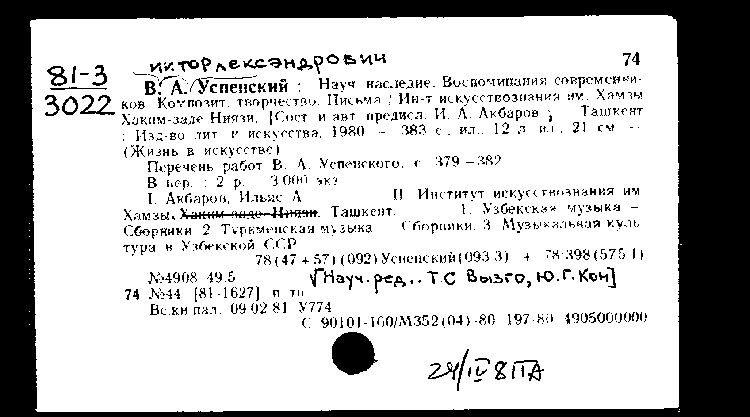 иктор лександрович
74
81-3
3022
В. А. Успенский : Науч наследие. Воспоминания современни-
ков Композит. творчество. Письма / Ин-т искусствознания им. Хамзы
Хаким-заде Ниязи, [Сост и авт предисл. И. А. Акбаров] Ташкент
: Изд-во лит и искусства, 1980 - 383 с, ил., 12 л ил., 21 см —
(Жизнь в искусстве)
Перечень работ В. А. Успенского, с 379-382
В пер. : 2 р. 3 000 экз
I. Акбаров, Ильяс А II Институт искусствознания им
Хамзы Хаким-заде Ниязи. Ташкент. 1. Узбекская музыка —
Сборники 2 Туркменская музыка Сборники. 3 Музыкальная куль
тура в Узбекской ССР
78(47+57)(092)Успенский(093 3) + 78·398(575 1)
№4908 49.5 [Науч. ред.. Т.С Вызго, Ю.Г. Кон]
74 №44 [81-1627] п тп
Вс.кн пал. 09 02 81 У774
С 90101-160/М352(04)-80 197-80 4905000000
24/IV 81 ПА